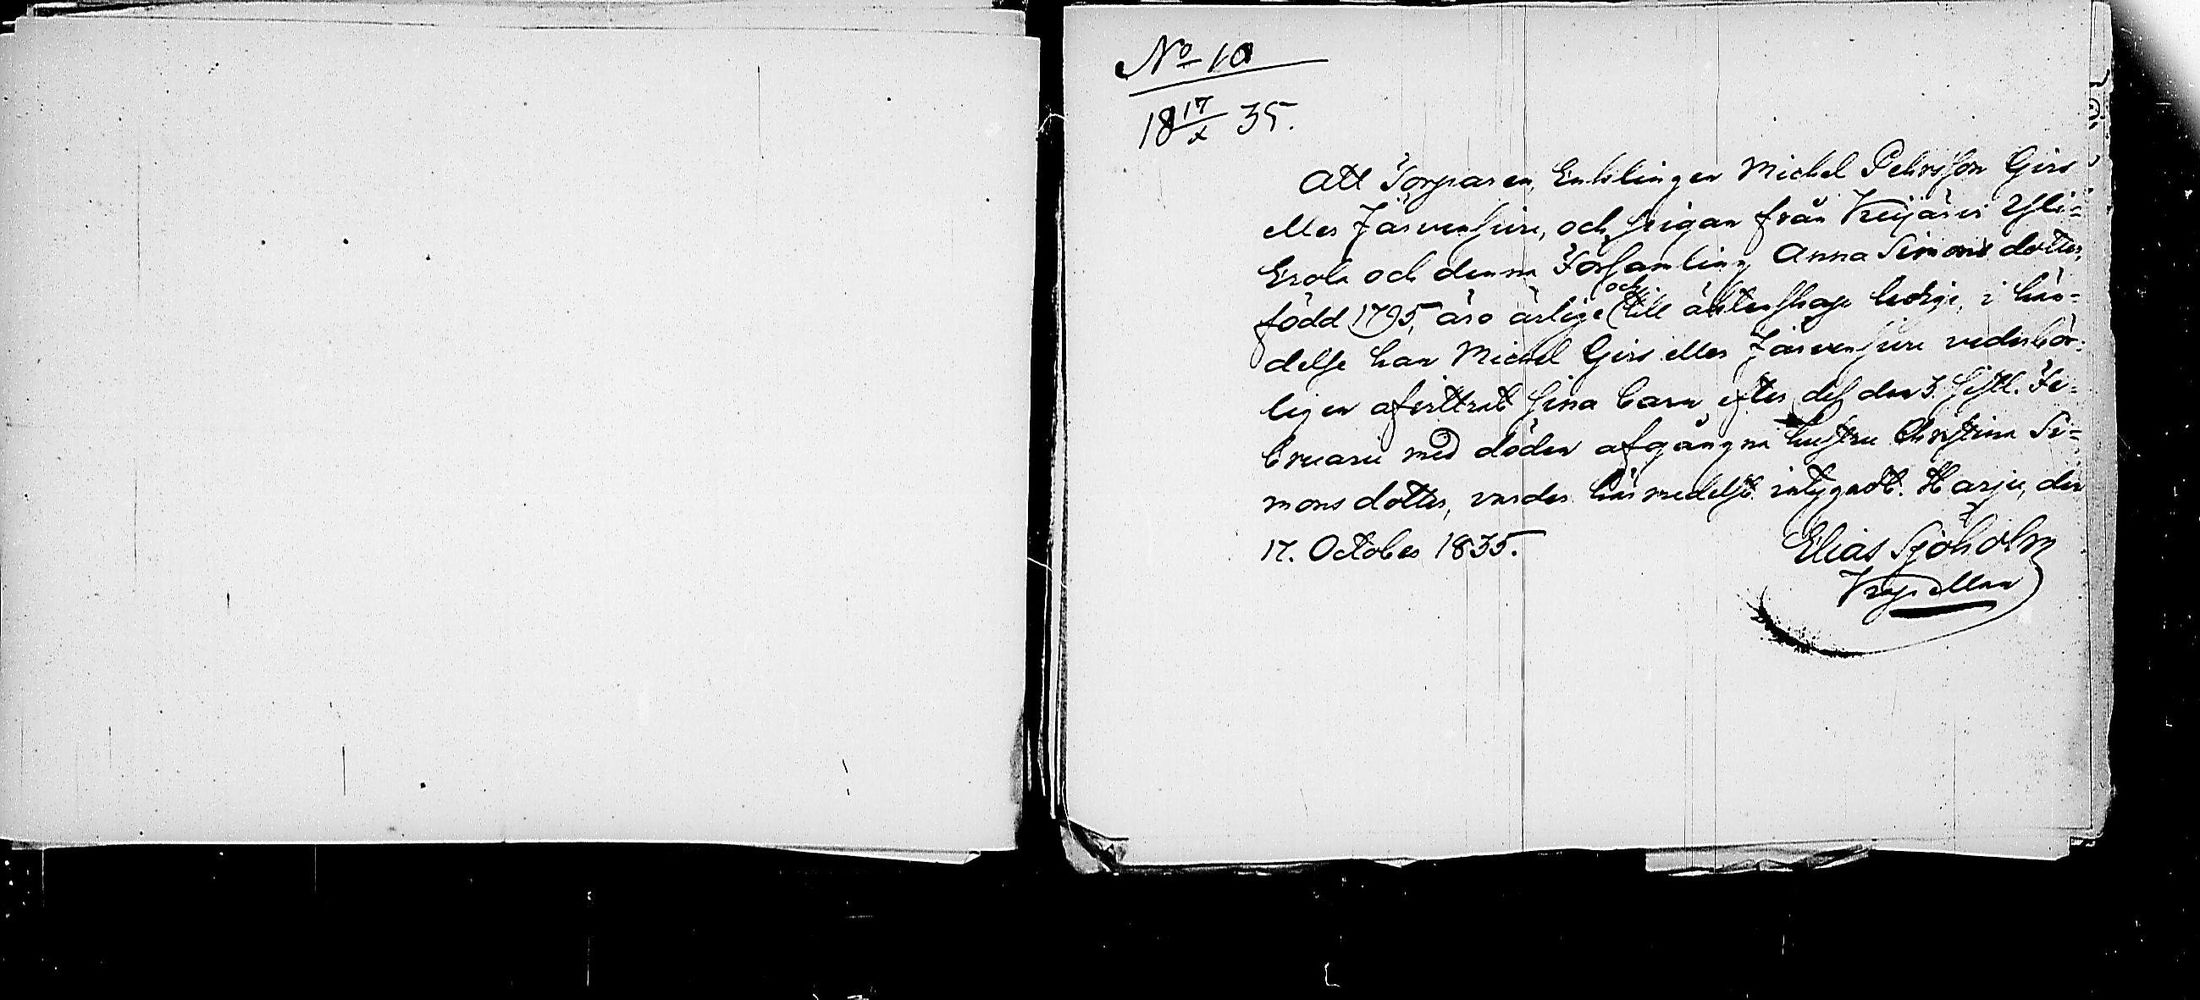 No 10
18 17/x 35.
Att Torparen, Enklingen Michel Pehrsson Girs
eller Järvensivu, och pigan från Keijärvi Yli-
Erola och denna Församling Anna Simons dotter,
född 1795, äro ärlige och till äktenskap ledige, i hän-
delse han Michel Girs eller Järvensivu vederbör-
ligen afvittrat sina barn efter dess den 3. sistl. Fe-
bruari med döden afgångna hustru Christina Si-
mons dotter, varder härmedelst intygadt. Harju, den
17. October 1835.
Elias Sjöholm
Kapellan